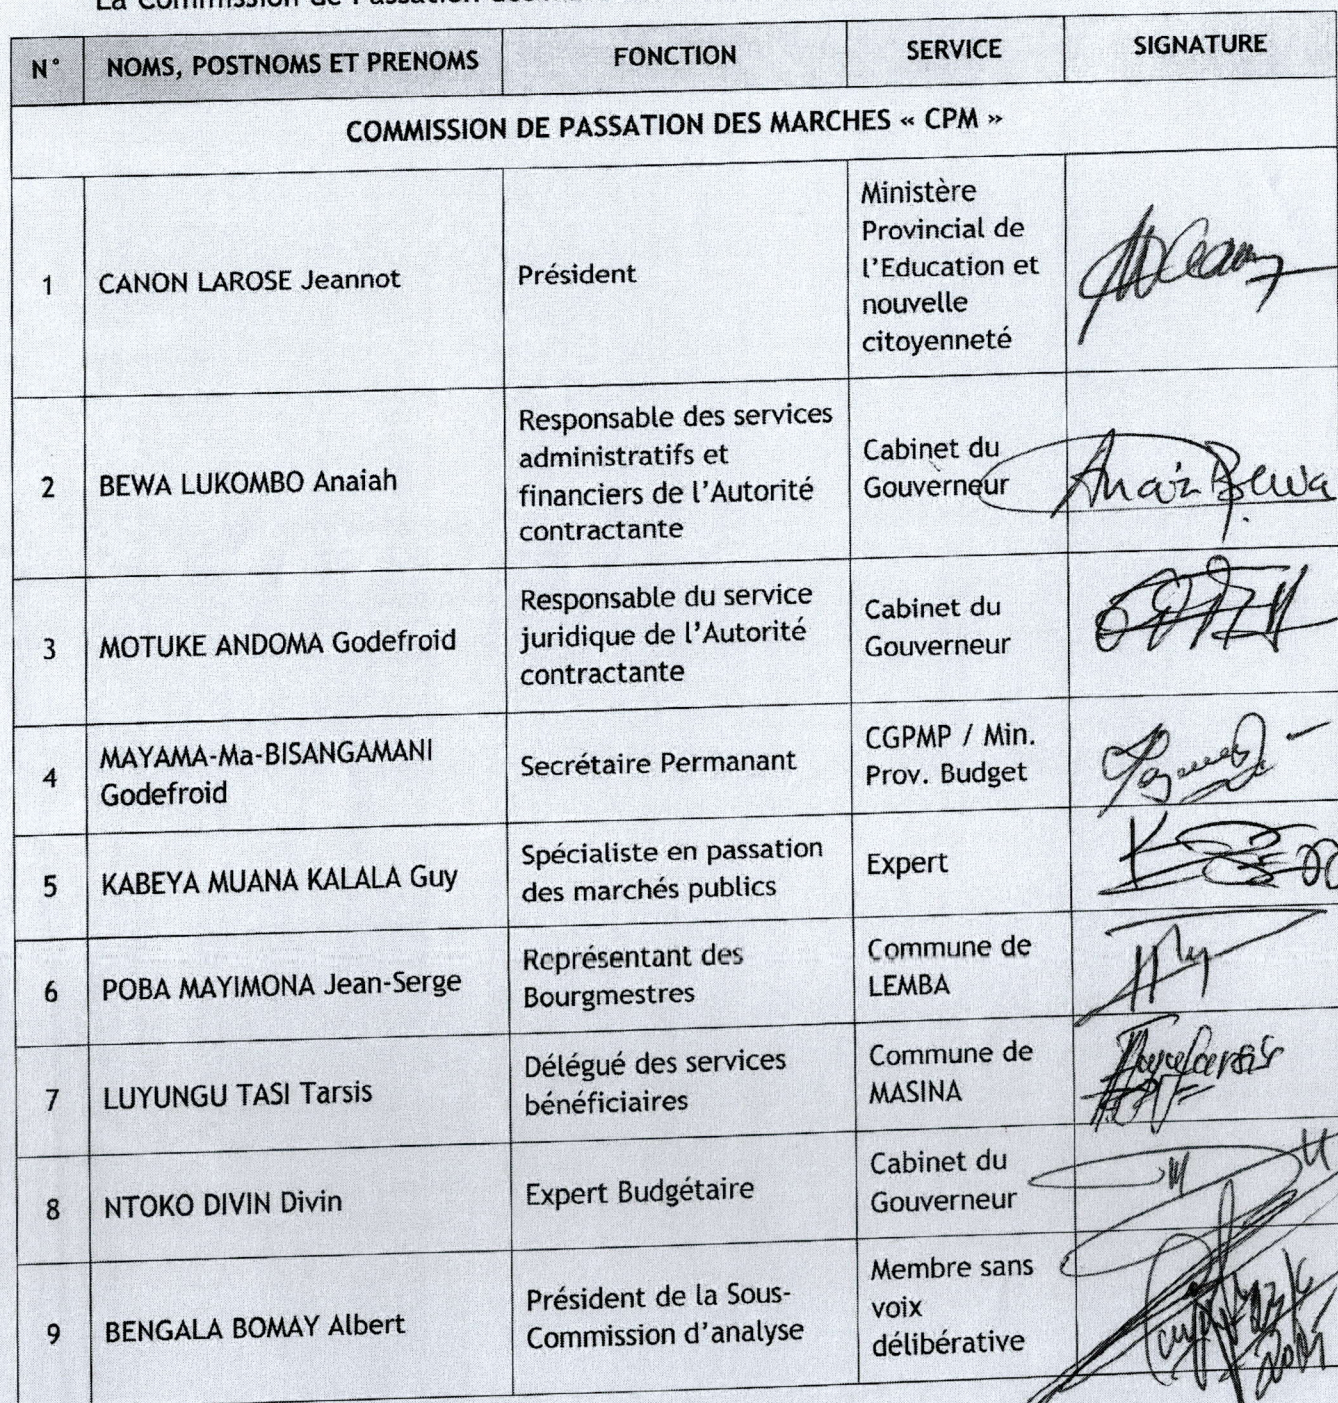 La Commission de Passation
N° NOMS, POSTNOMS ET PRENOMS FONCTION SERVICE SIGNATURE
COMMISSION DE PASSATION DES MARCHES « CPM »
1 CANON LAROSE Jeannot Président Ministère
Provincial de
l'Education et
nouvelle
citoyenneté
2 BEWA LUKOMBO Anaiah Responsable des services
administratifs et
financiers de l'Autorité
contractante
Cabinet du
Gouverneur
Bewa
3 MOTUKE ANDOMA Godefroid Responsable du service
juridique de l'Autorité
contractante
Cabinet du
Gouverneur
4 MAYAMA-Ma-BISANGAMANI
Godefroid
Secrétaire Permanant
CGPMP / Min.
Prov. Budget
5 KABEYA MUANA KALALA Guy Spécialiste en passation
des marchés publics
Expert
6 POBA MAYIMONA Jean-Serge Représentant des
Bourgmestres
Commune de
LEMBA
7 LUYUNGU TASI Tarsis Délégué des services
bénéficiaires
Commune de
MASINA
8 NTOKO DIVIN Divin Expert Budgétaire Cabinet du
Gouverneur
9 BENGALA BOMAY Albert Président de la Sous-
Commission d'analyse
Membre sans
voix
délibérative